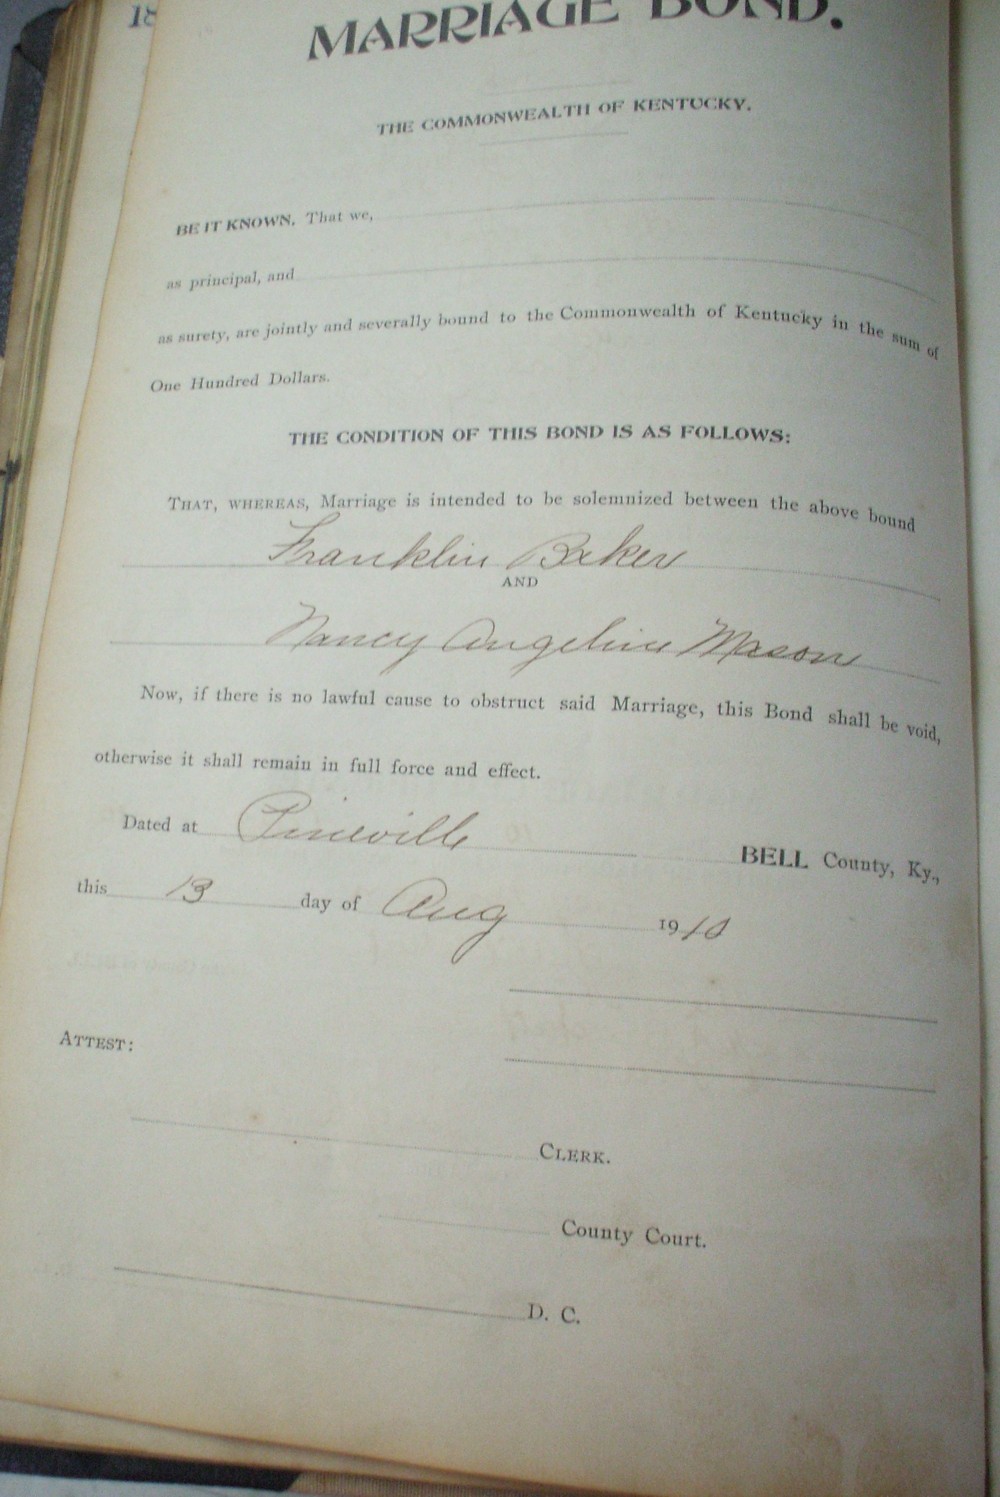 MARRIAGE BOND.
THE COMMONWEALTH OF KENTUCKY.
BE IT KNOWN. That we,
as principal, and
as surety, are jointly and severally bound to the Commonwealth of Kentucky in the sum of
One Hundred Dollars.
THE CONDITION OF THIS BOND IS AS FOLLOWS:
THAT, WHEREAS, Marriage is intended to be solemnized between the above bound
Franklin Baker
AND
Nancy Angeline Mason
Now, if there is no lawful cause to obstruct said Marriage, this Bond shall be void,
otherwise it shall remain in full force and effect.
Dated at Pineville BELL County, Ky.,
this 13 day of Aug 1910
ATTEST:
CLERK.
County Court.
D. C.